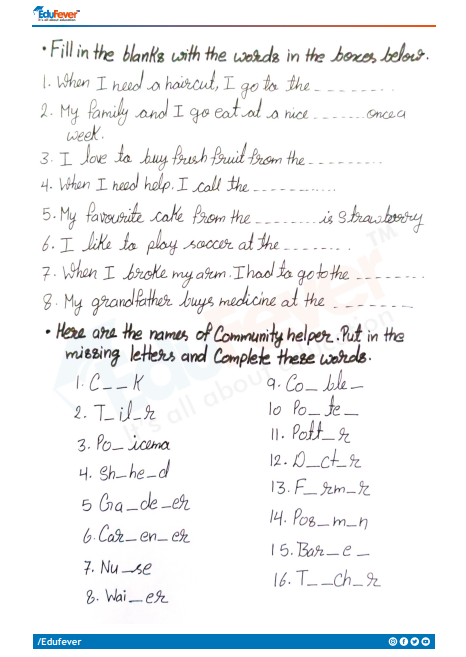 EduFever
It's all about education
• Fill in the blanks with the words in the boxes below.
1. When I need a haircut, I go to the _ _ _ _ _ _ _ .
2. My family and I go eat at a nice _ _ _ _ _ _ once a
week.
3. I love to buy frush fruit from the _ _ _ _ _ _ _ _ .
4. When I need help. I call the _ _ _ _ _ _ _ _ _ .
5. My favourite cake from the _ _ _ _ _ _ _ is strawberry
6. I like to play soccer at the _ _ _ _ _ _ _ .
7. When I broke my arm. I had to go to the _ _ _ _ _ _ _ _
8. My grandfather buys medicine at the _ _ _ _ _ _ _ _
• Here are the names of Community helper. Put in the
missing letters and Complete these words.
1. C_ _K
2. T_il_r
3. Po_icema
4. Sh_he_d
5 Ga_de_er
6. Car_en_er
7. Nu_se
8. Wai_er
9. Co_ble_
10 Po_te_
11. Pott_r
12. D_ct_r
13. F_rm_r
14. Pos_m_n
15. Bar_e_
16. T_ _ch_r
EduFever™
it's all about education
/Edufever